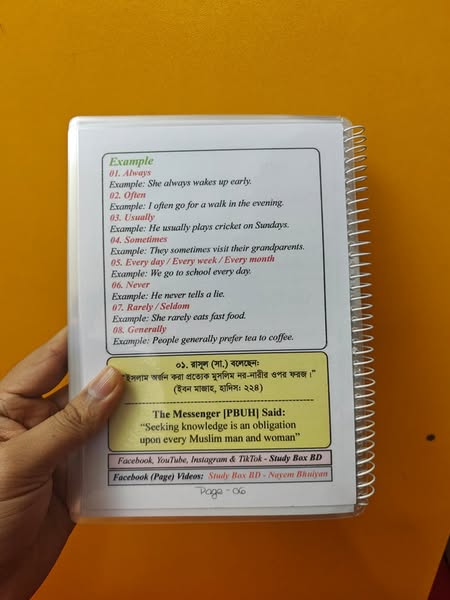 Example
01. Always
Example: She always wakes up early.
02. Often
Example: I often go for a walk in the evening.
03. Usually
Example: He usually plays cricket on Sundays.
04. Sometimes
Example: They sometimes visit their grandparents.
05. Every day / Every week / Every month
Example: We go to school every day.
06. Never
Example: He never tells a lie.
07. Rarely / Seldom
Example: She rarely eats fast food.
08. Generally
Example: People generally prefer tea to coffee.
০১. রাসূল (সা.) বলেছেন:
ইসলাম অর্জন করা প্রত্যেক মুসলিম নর-নারীর ওপর ফরজ।"
(ইবন মাজাহ, হাদিস: ২২৪)
The Messenger [PBUH] Said:
“Seeking knowledge is an obligation
upon every Muslim man and woman”
Facebook, YouTube, Instagram & TikTok - Study Box BD
Facebook (Page) Videos: Study Box BD - Nayem Bhuiyan
Page - 06